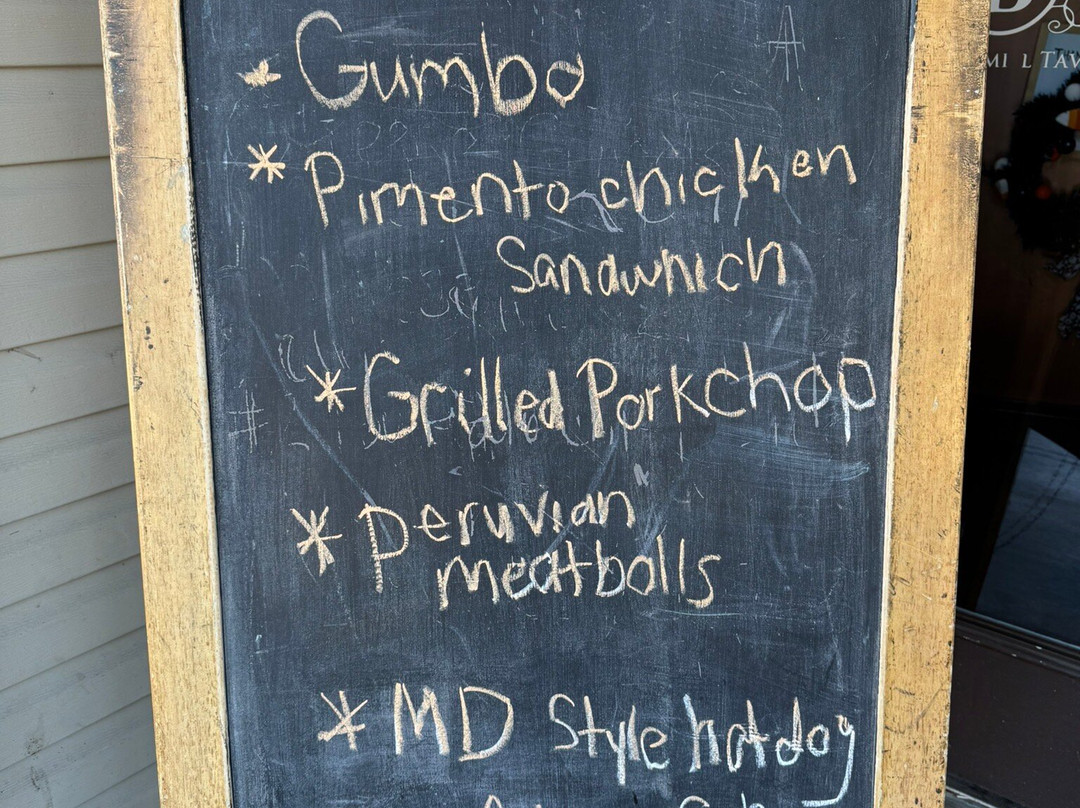 * Gumbo
* Pimento chicken
Sandwhich
* Grilled Porkchop
* Peruvian
meatballs
* MD Style hotdog